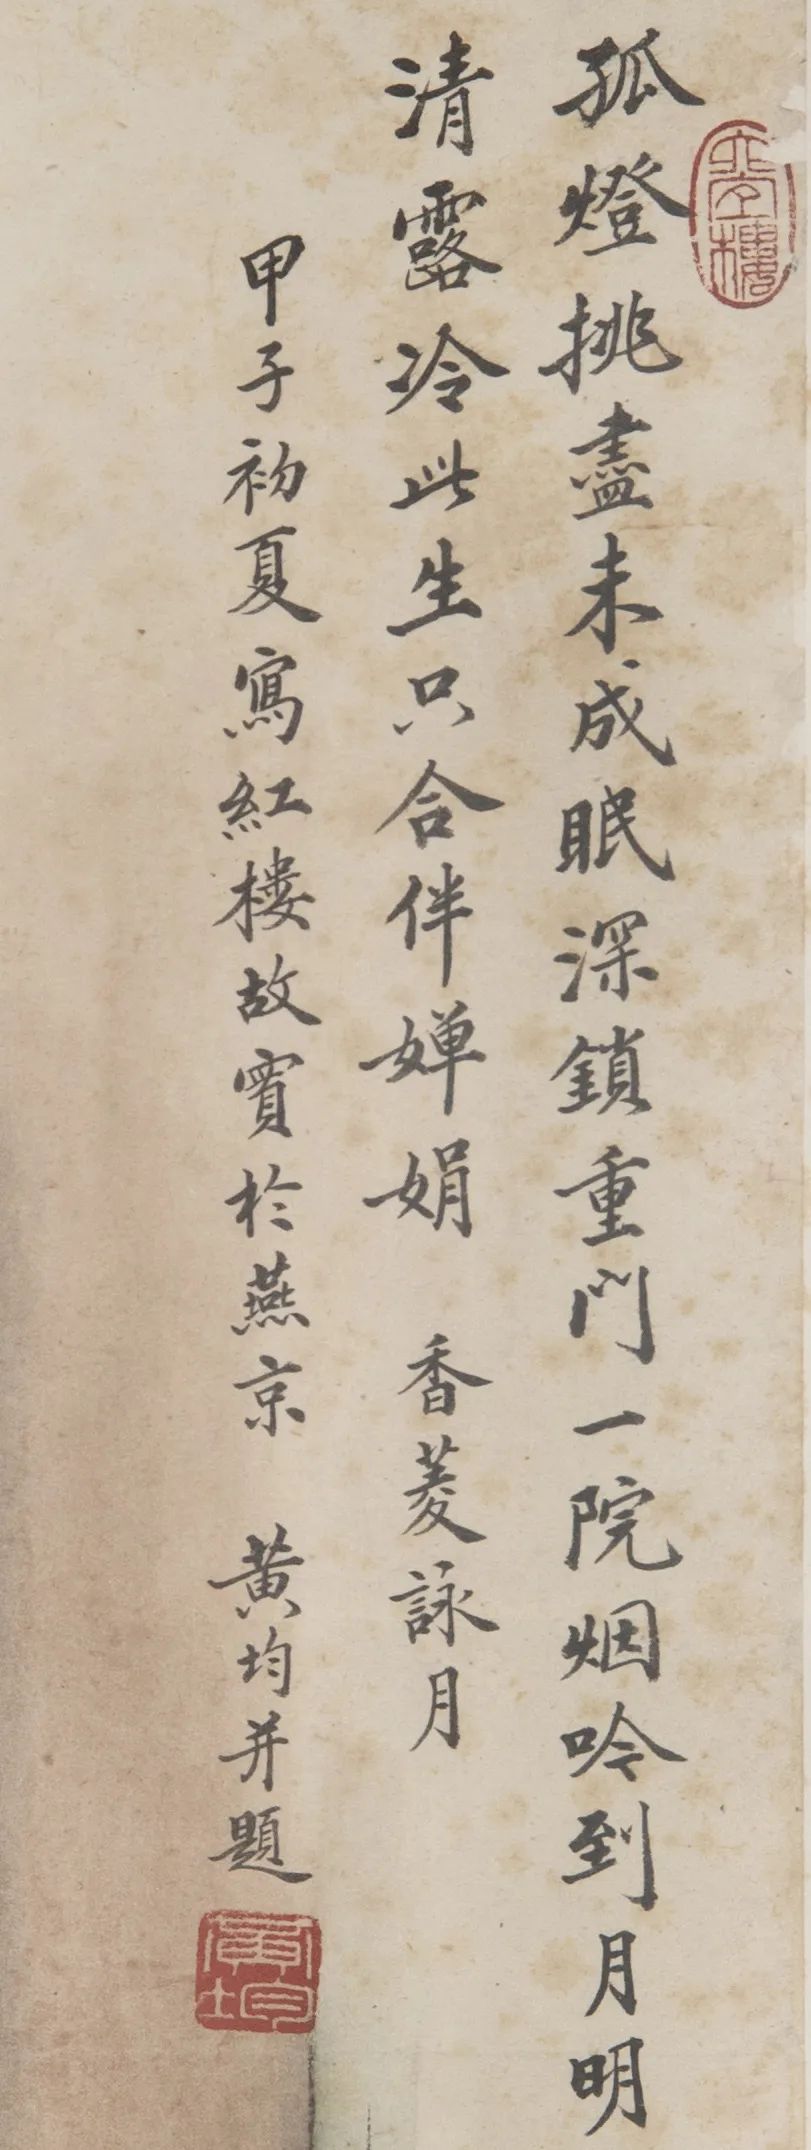 孤燈挑盡未成眠深鎖重門一院烟吟到月明
清露冷此生只合伴嬋娟 香菱詠月
甲子初夏寫紅樓故實於燕京 黄均并題
黄均